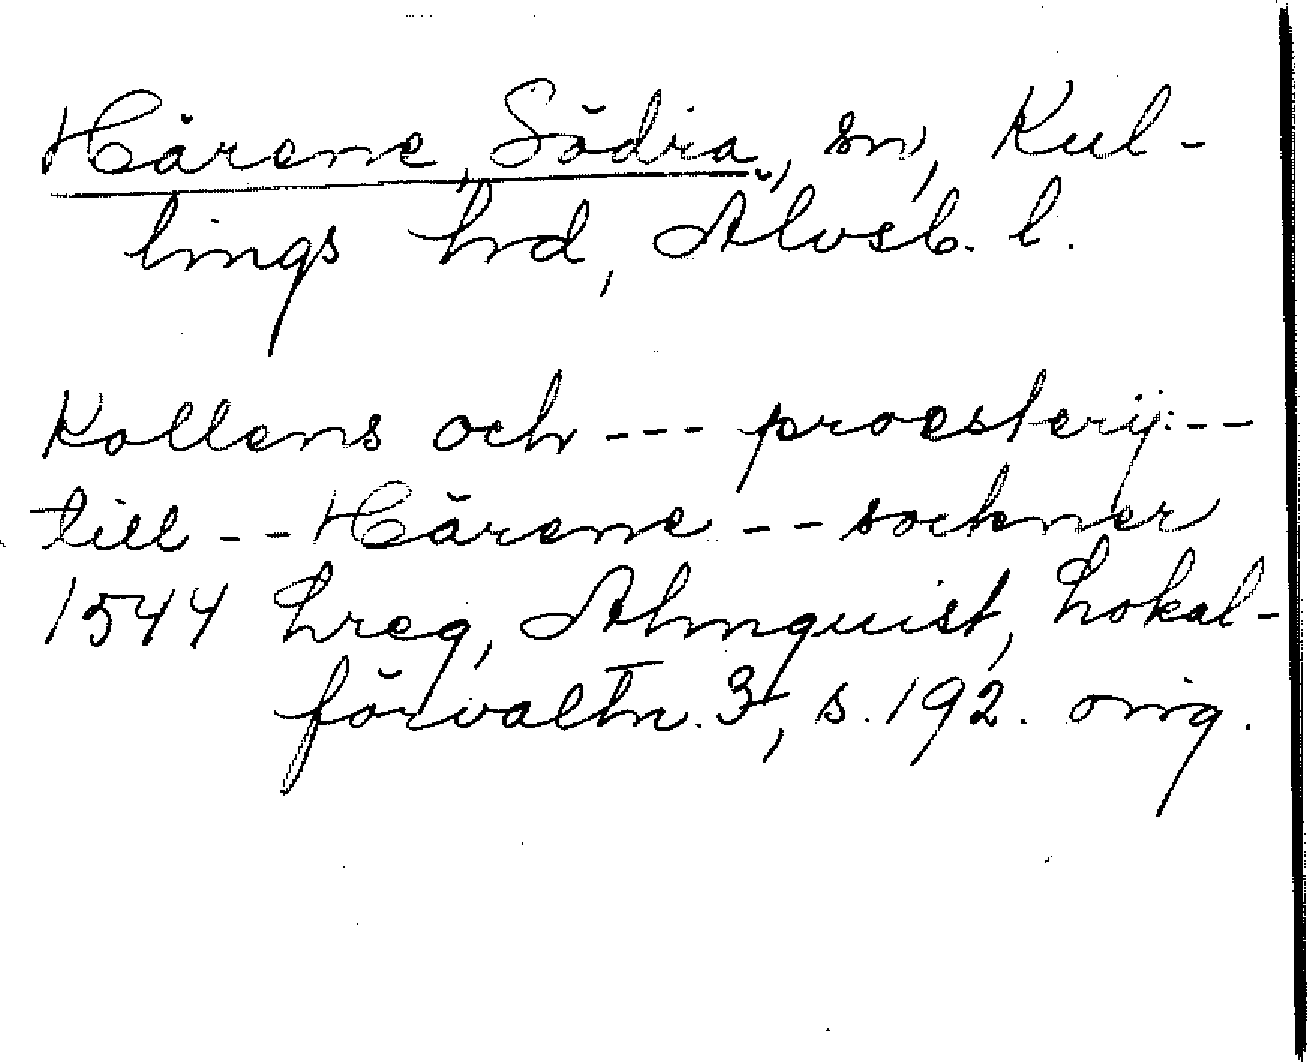 Härene, Södra, sn, Kul-
lings hd, Älvsb. l.
Kollens och --- proesterij: --
till -- Härene -- sockner
1544 hreg, Almquist, Lokal-
förvaltn. 3, s. 192. orig.